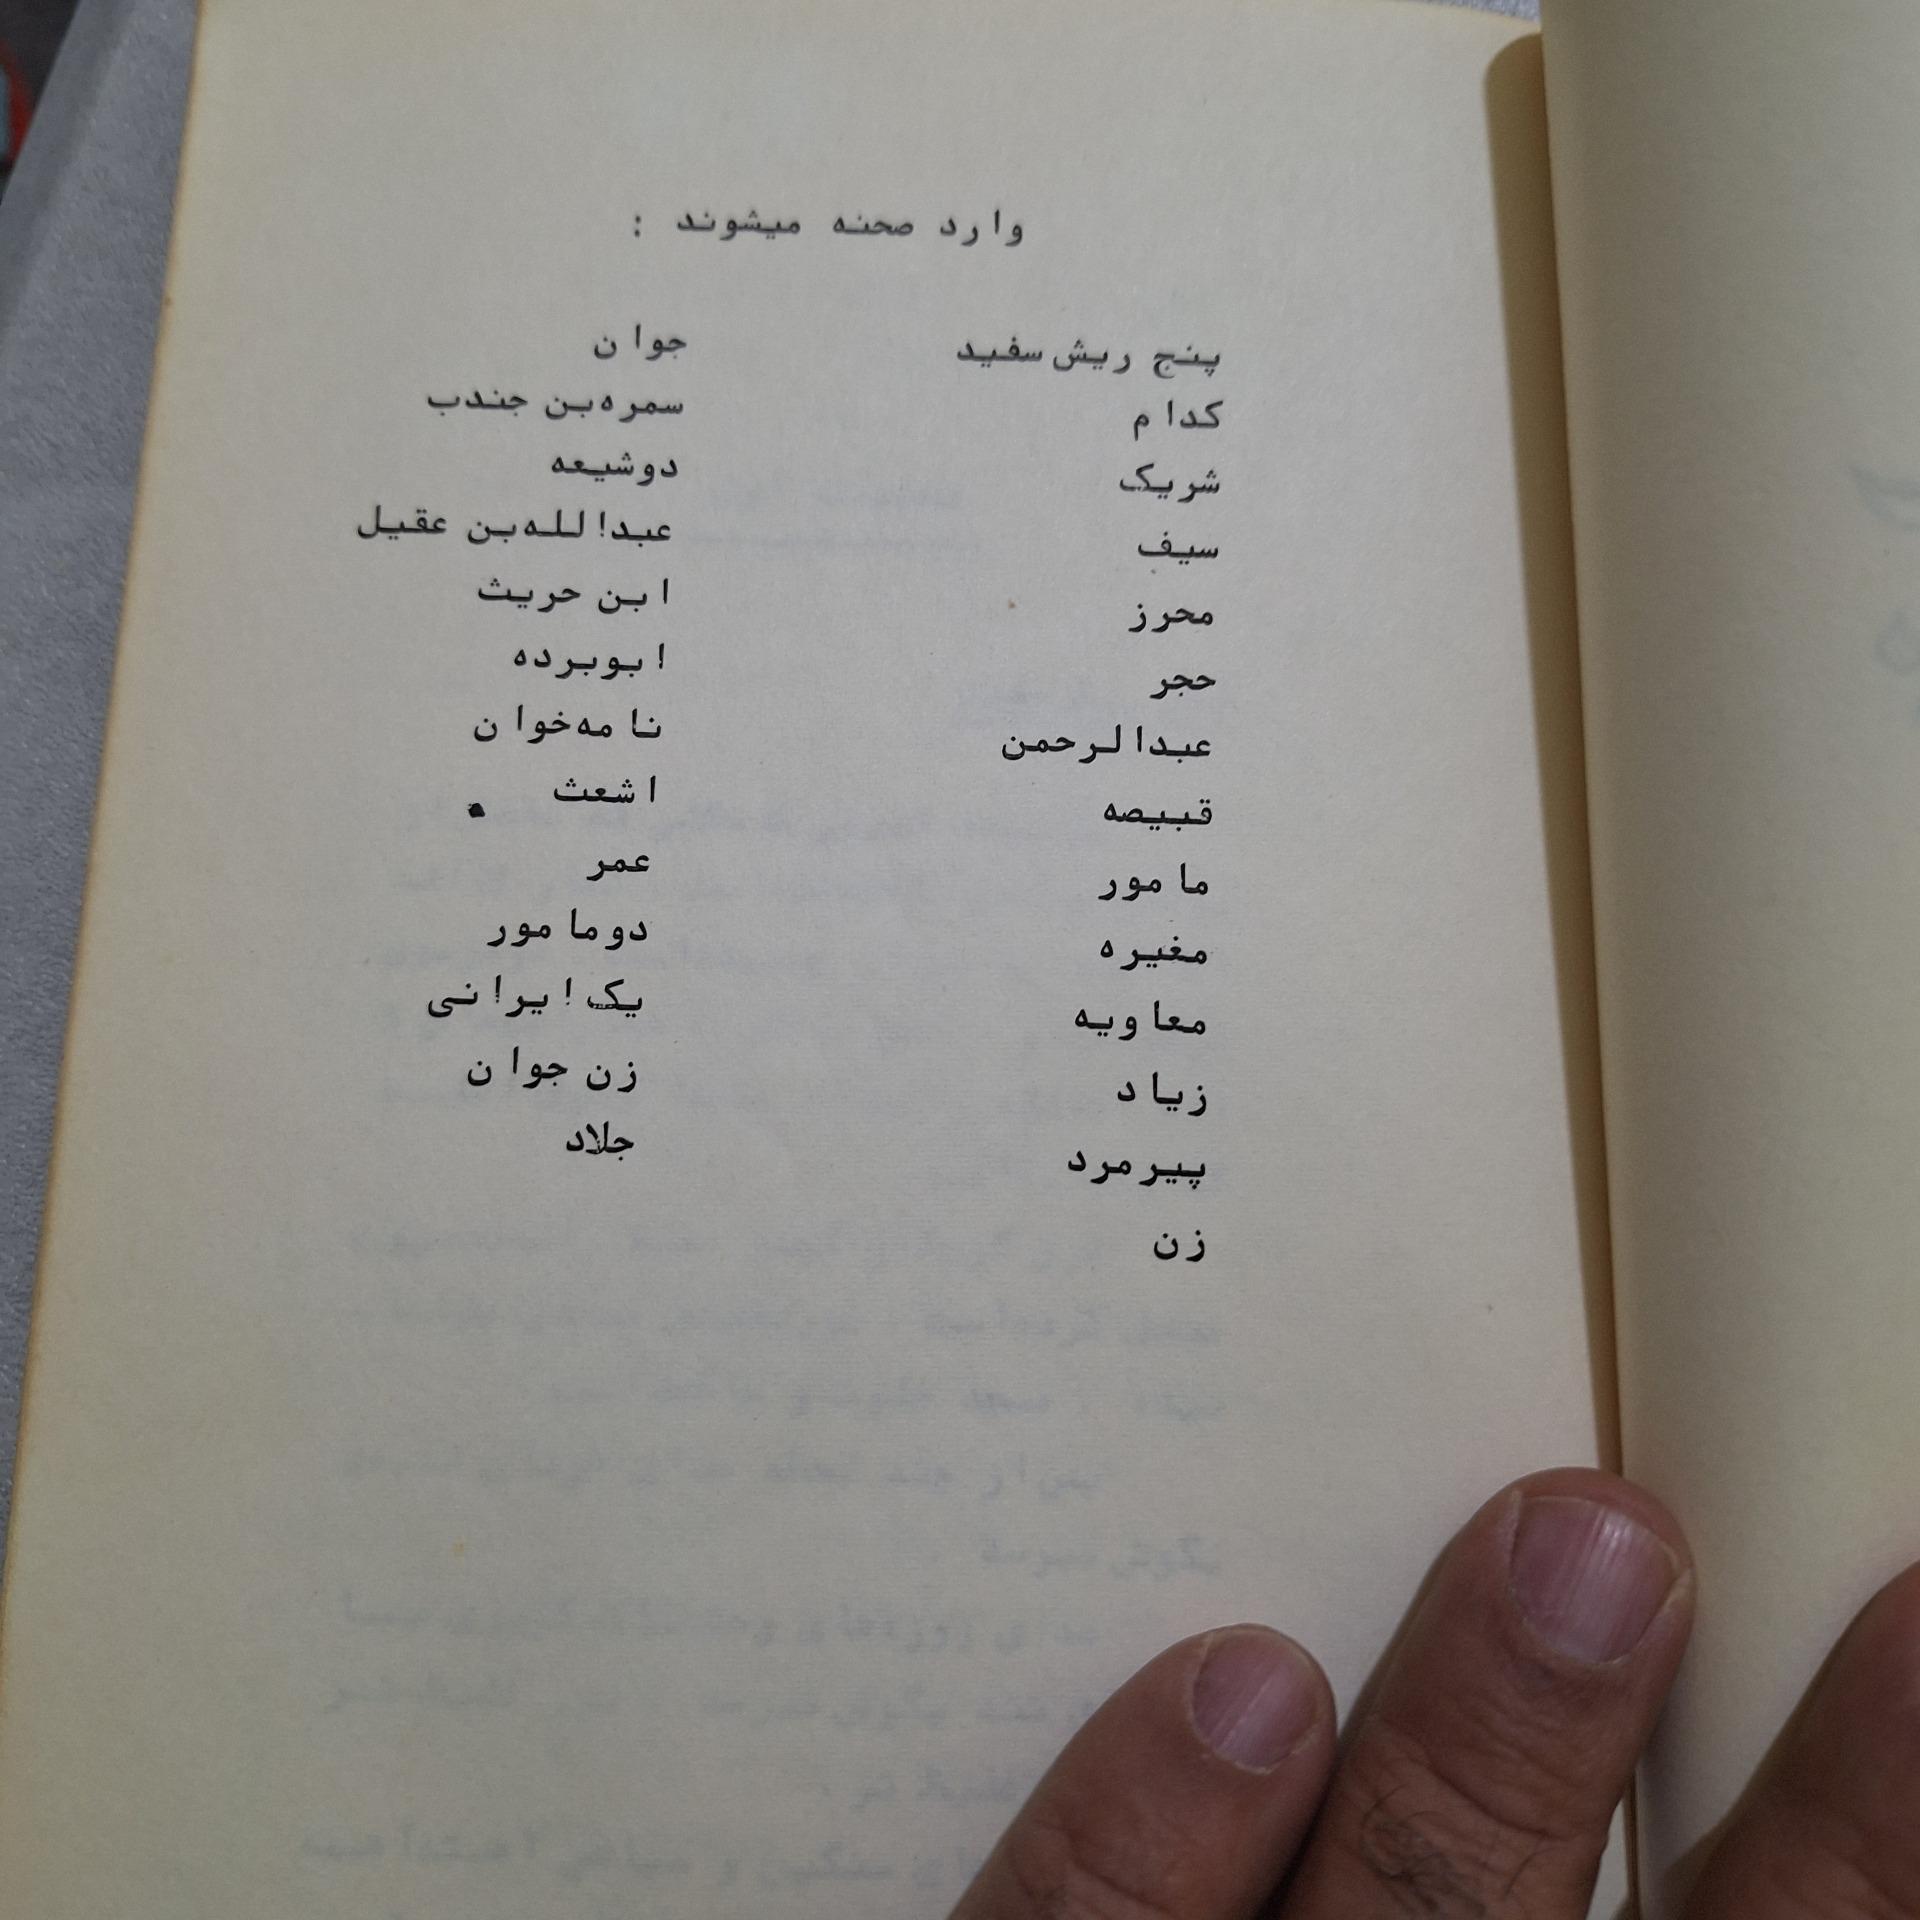 وارد صحنه میشوند :
پنج ریش سفید
کدام
شریک
سیف
محرز
حجر
عبدالرحمن
قبیصه
مامور
مغیره
معاویه
زیاد
پیرمرد
زن
جوان
سمره‌بن جندب
دوشیعه
عبدالله‌بن عقیل
ابن حریث
ابوبرده
نامه‌خوان
اشعث
عمر
دومامور
یک ایرانی
زن جوان
جلاد